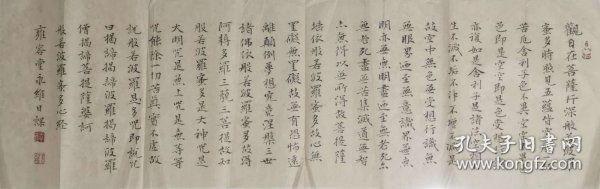 觀自在菩薩行深般若波羅
蜜多時照見五蘊皆空度一切
苦厄舍利子色不異空空不異色
色即是空空即是色受想行識
亦復如是舍利子是諸法空相不
生不滅不垢不淨不增不減是
故空中無色無受想行識無
無眼界乃至無意識界無無
明亦無無明盡乃至無老死亦
無老死盡無苦集滅道無智
亦無得以無所得故菩提薩
埵依般若波羅蜜多故心無
罣礙無罣礙故無有恐怖遠
離顛倒夢想究竟涅槃三世
諸佛依般若波羅蜜多故得
阿耨多羅三藐三菩提故知
般若波羅蜜多是大神咒是
大明咒是無上咒是無等等
咒能除一切苦真實不虛故
說般若波羅蜜多咒即說咒
曰揭諦揭諦波羅揭諦波羅
僧揭諦菩提薩婆訶
般若波羅蜜多心經
雍容堂永維日課
孔夫子旧书网